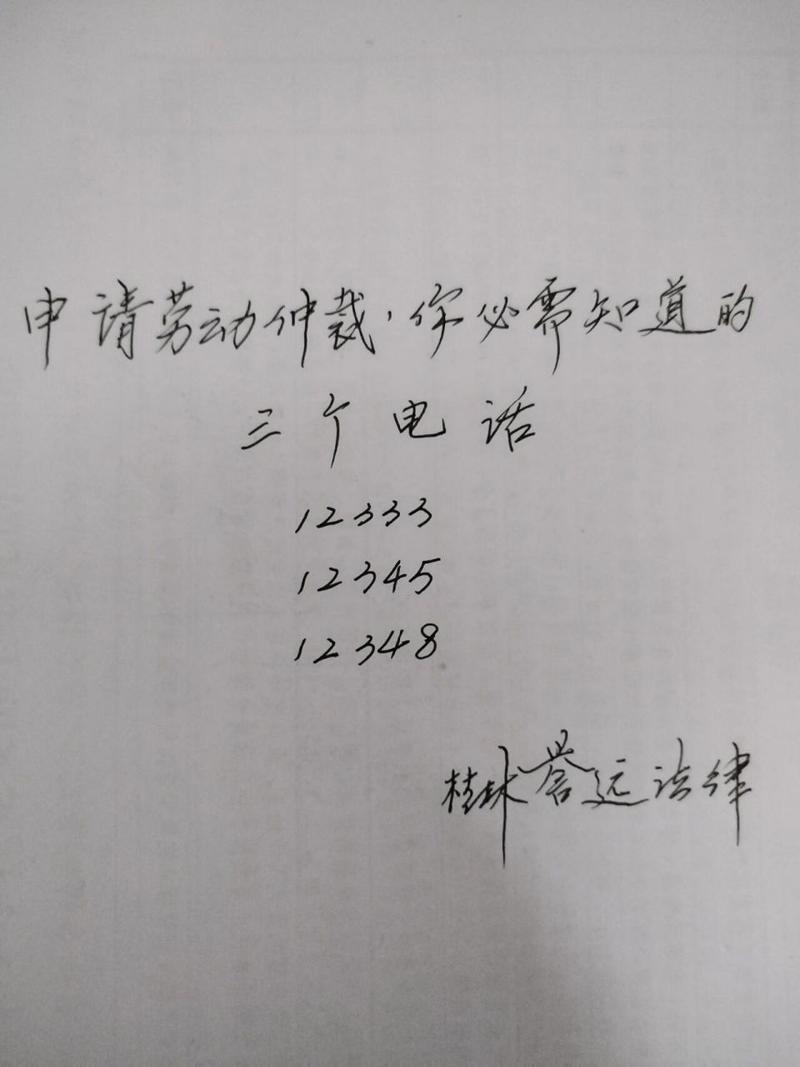 申请劳动仲裁，你必需知道的
三个电话
12333
12345
12348
桂林誉远法律